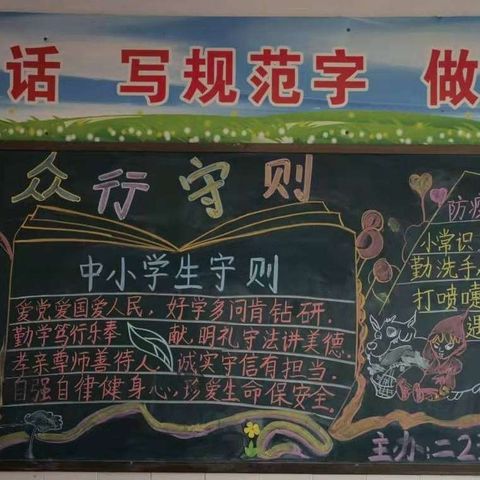 话 写规范字 做
众行守则
中小学生守则
爱党爱国爱人民，好学多问肯钻研.
勤学笃行乐奉 献,明礼守法讲美德.
孝亲尊师善待人，诚实守信有担当.
自强自律健身心,珍爱生命保安全.
防疫
小常识
勤洗手
打喷嚏
遇
主办:二2